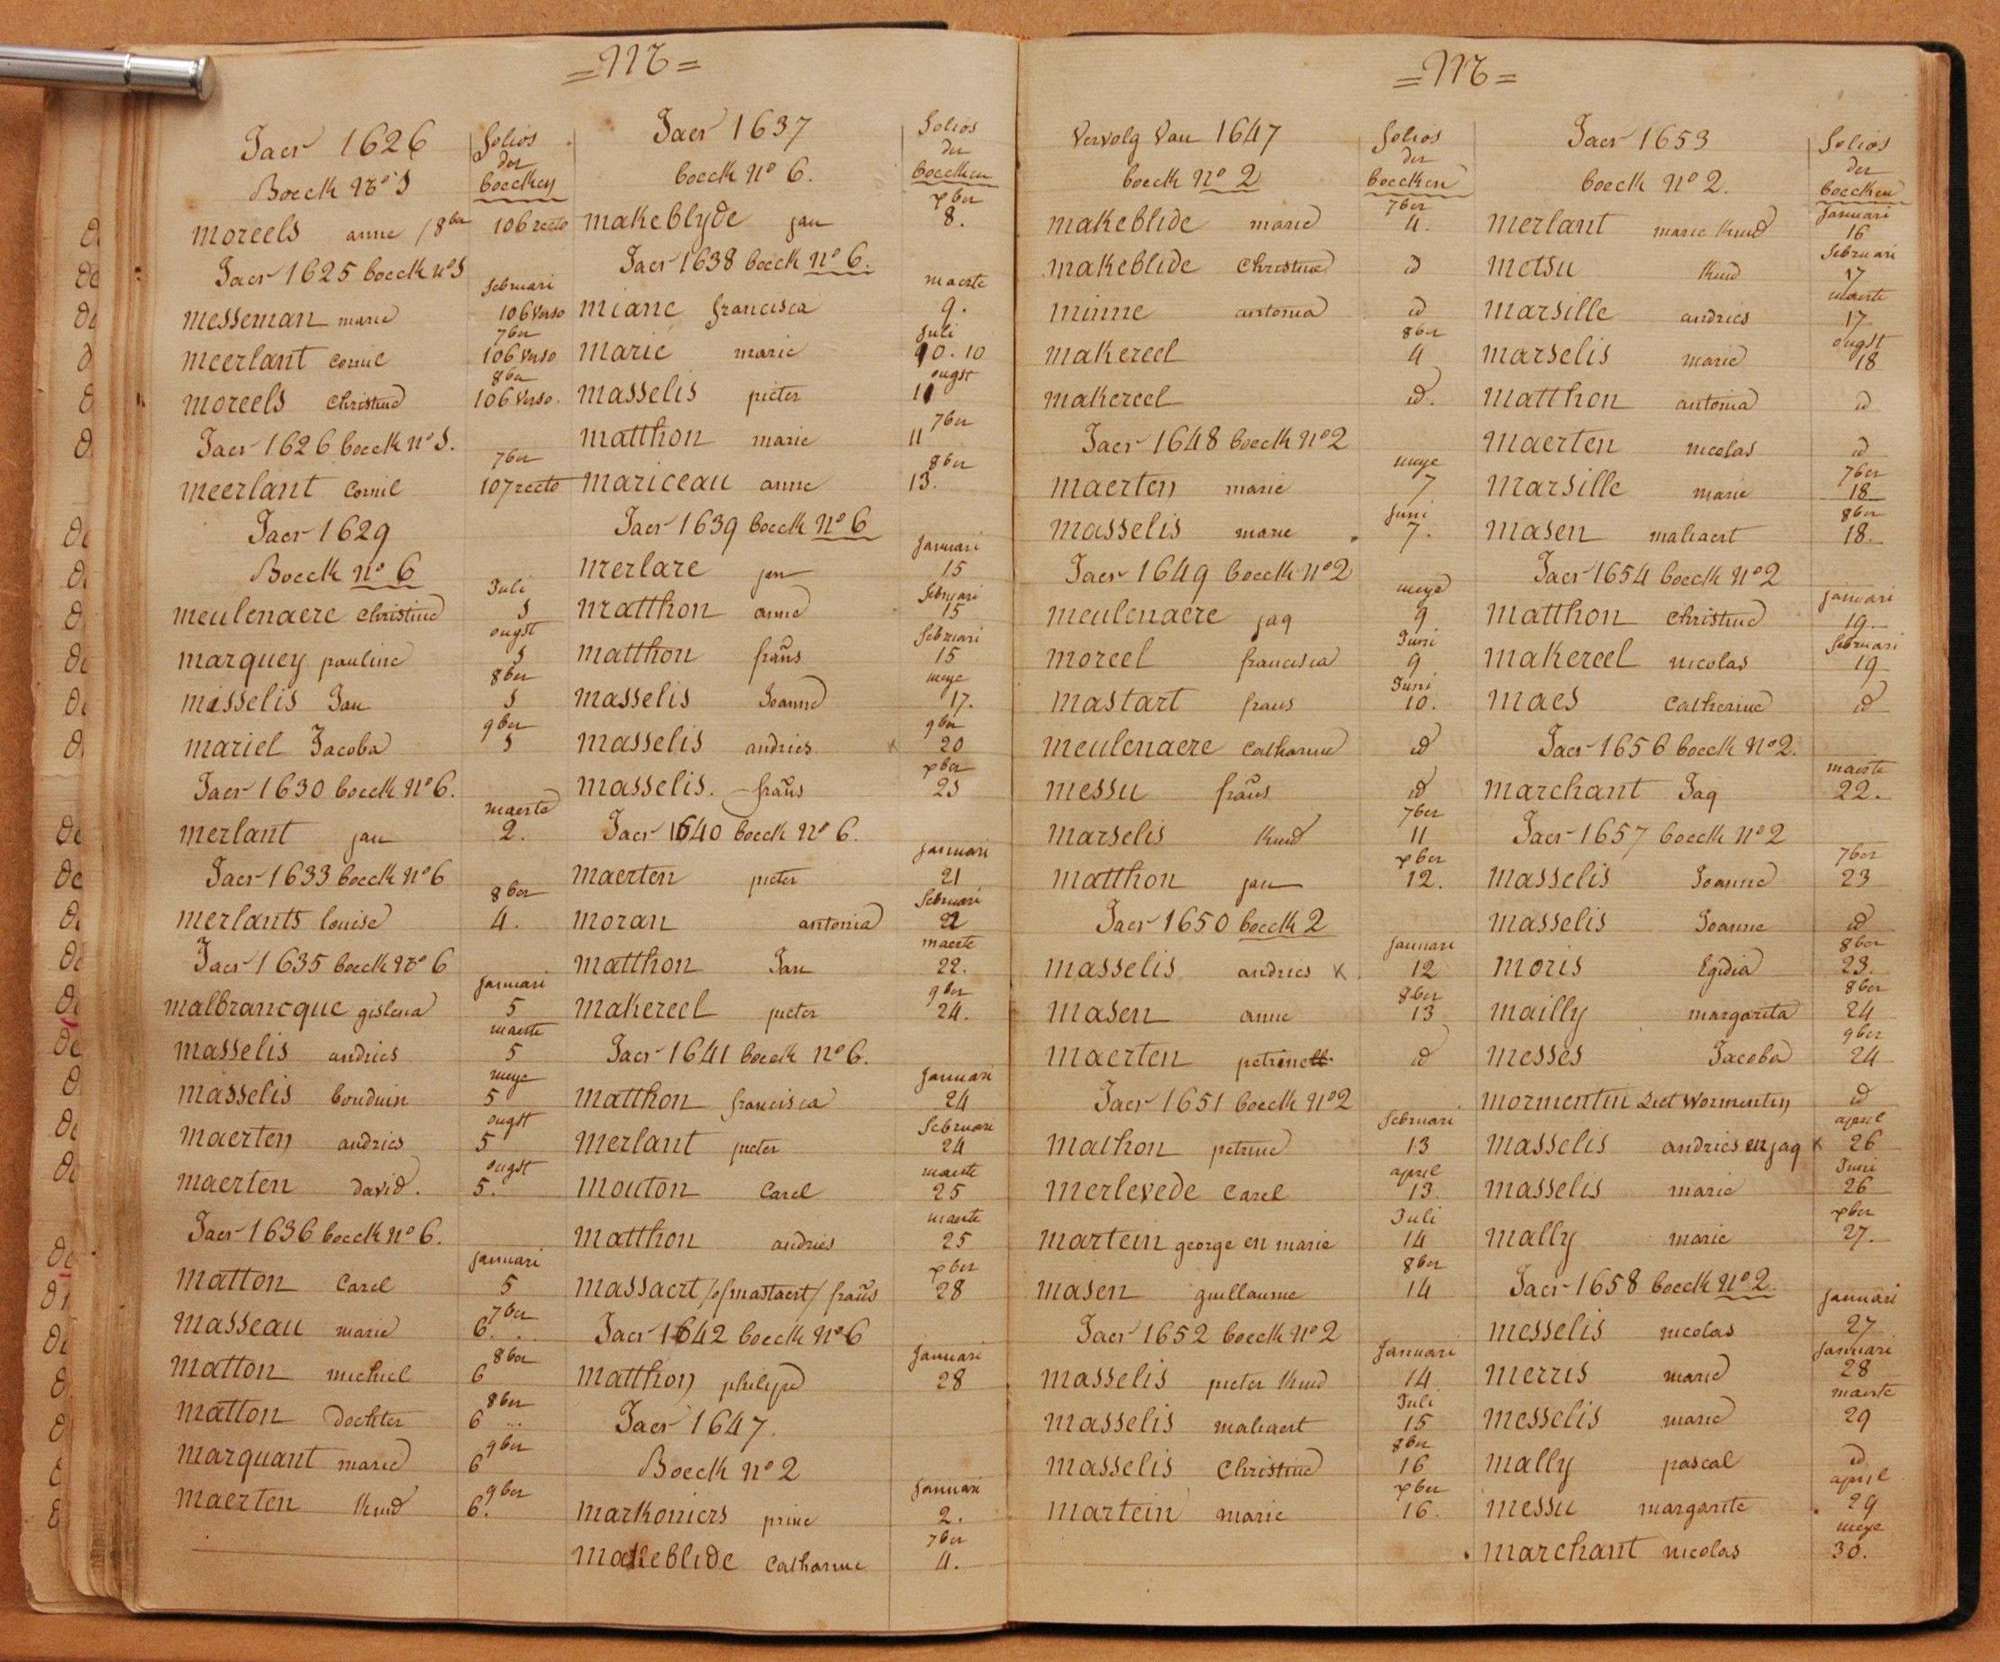 = M =
Jaer 1626
folios der boecken
Boeck No 1
moreels anne /8ber 106 recto
Jaer 1625 boeck no 1
februari
messeman marie 106 verso
7ber
meerlant cornil 106 verso
8ber
moreels Christine 106 verso.
Jaer 1626 boeck no 1.
7ber
meerlant Cornil 107 recto
Jaer 1629
Boeck no 6
Juli
meulenaere Christine 1
ougst
marquey pauline 1
8ber
masselis Jan 1
9ber
mariel Jacoba 1
Jaer 1630 boeck no 6.
maerte
merlant jan 2.
Jaer 1633 boeck no 6
8ber
merlants louise 4.
Jaer 1635 boeck no 6
januari
malbrancque gislena 5
maerte
masselis andries 5
meye
masselis bouduin 5
ougst
maerten andries 5
ougst
maerten david. 5.
Jaer 1636 boeck no 6.
januari
matton Carel 5
7ber
masseau marie 6.
8ber
matton michiel 6
8ber
matton dochter 6
9ber
marquant marie 6
9ber
maerten kind 6.
Jaer 1637
folios der boecken
boeck no 6.
xber
makeblyde jan 8.
Jaer 1638 boeck no 6.
maerte
miane francisca 9.
Juli
marie marie 10. 10
ougst
masselis pieter 11
7ber
matthon marie 11
8ber
mariceau anne 13.
Jaer 1639 boeck no 6
januari
merlare jan 15
februari
matthon anne 15
februari
matthon frans 15
meye
masselis Joanne 17.
9ber
masselis andries x 20
xber
masselis. frans 23
Jaer 1640 boeck no 6.
januari
maerten pieter 21
februari
moran antonia 22
maerte
matthon Jan 22.
9ber
makereel pieter 24.
Jaer 1641 boeck no 6.
januari
matthon francisca 24
februari
merlant pieter 24
maerte
mouton Carel 25
maerte
matthon andries 25
xber
massaert /of mastaert/ frans 28
Jaer 1642 boeck no 6
januari
matthon philipe 28
Jaer 1647.
Boeck no 2
januari
markoniers prine 2.
7ber
makeblide Catharine 4.
= M =
Vervolg van 1647
folios der boecken
boeck no 2
7ber
makeblide marie 4.
makeblide Christine id
minne antonia id
8ber
makereel 4
makereel id.
Jaer 1648 boeck no 2
meye
maerten marie 7
Juni
masselis marie 7.
Jaer 1649 boeck no 2
meye
meulenaere jaq 9
Juni
moreel francisca 9
Juni
mastart frans 10.
meulenaere Catharine id
messu frans id
7ber
marselis kind 11
xber
matthon jan 12.
Jaer 1650 boeck 2
januari
masselis andries x 12
8ber
masen anne 13
maerten petrine id
Jaer 1651 boeck no 2
februari
mathon petrine 13
april
merlevede Carel 13
Juli
martein george en marie 14
8ber
masen guillaume 14
Jaer 1652 boeck no 2
januari
masselis pieter kind 14
Juli
masselis maliaert 15
8ber
masselis Christine 16
xber
martein marie 16.
Jaer 1653
folios der boecken
boeck no 2.
januari
merlant marie kind 16
februari
metsu kind 17
maerte
marsille andries 17
ougst
marselis marie 18
matthon antonia id
maerten nicolas id
7ber
marsille marie 18
8ber
masen maliaert 18.
Jaer 1654 boeck no 2
januari
matthon Christine 19.
februari
makereel nicolas 19
maes Catherine id
Jaer 1656 boeck no 2.
maerte
marchant Jaq 22.
Jaer 1657 boeck no 2
7ber
masselis Joanne 23
masselis Joanne id
8ber
moris Egidia 23.
8ber
mailly margarita 24
9ber
messes Jacoba 24
mormentin siet wormentin id
april
masselis andries en jaq x 26
Juni
masselis marie 26
xber
mally marie 27.
Jaer 1658 boeck no 2.
januari
messelis nicolas 27
januari
merris marie 28
maerte
messelis marie 29
mally pascal id
april
messu margarite 29
meye
marchant nicolas 30.